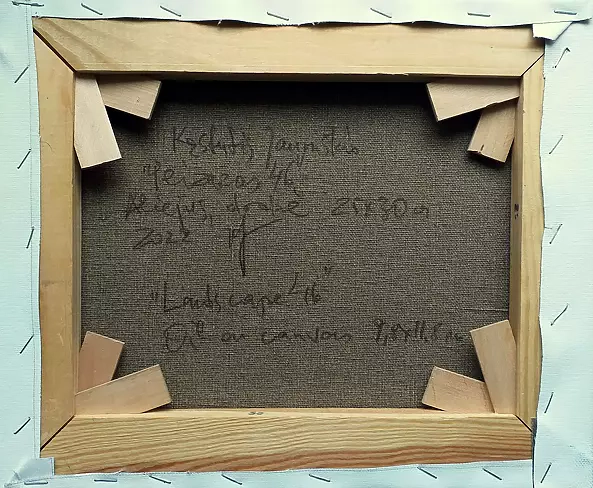 Kęstutis Jauniškis
"Peizažas
Aliejus, drobė 25x30 cm
2022
"Landscape
Oil on canvas 9,8x11,8 in